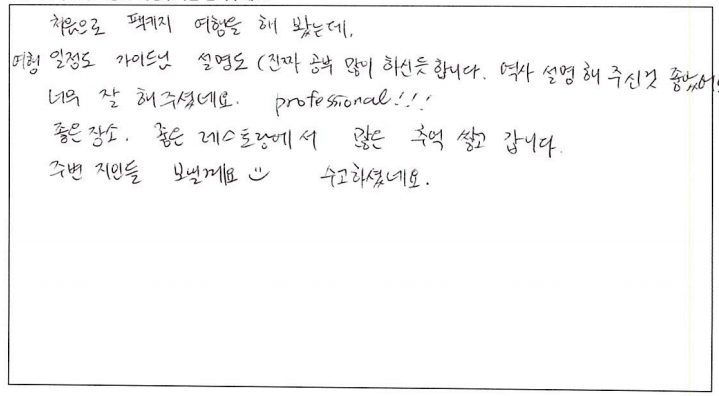 처음으로 팩키지 여행을 해 봤는데,
여행 일정도 가이드님 설명도 (진짜 공부 많이 하신듯합니다. 역사 설명해 주신것 좋았어요
너무 잘 해주셨네요. professional!!!
좋은장소. 좋은 레스토랑에서 많은 추억 쌓고 갑니다.
주변 지인들 보낼께요 ☺ 수고하셨네요.